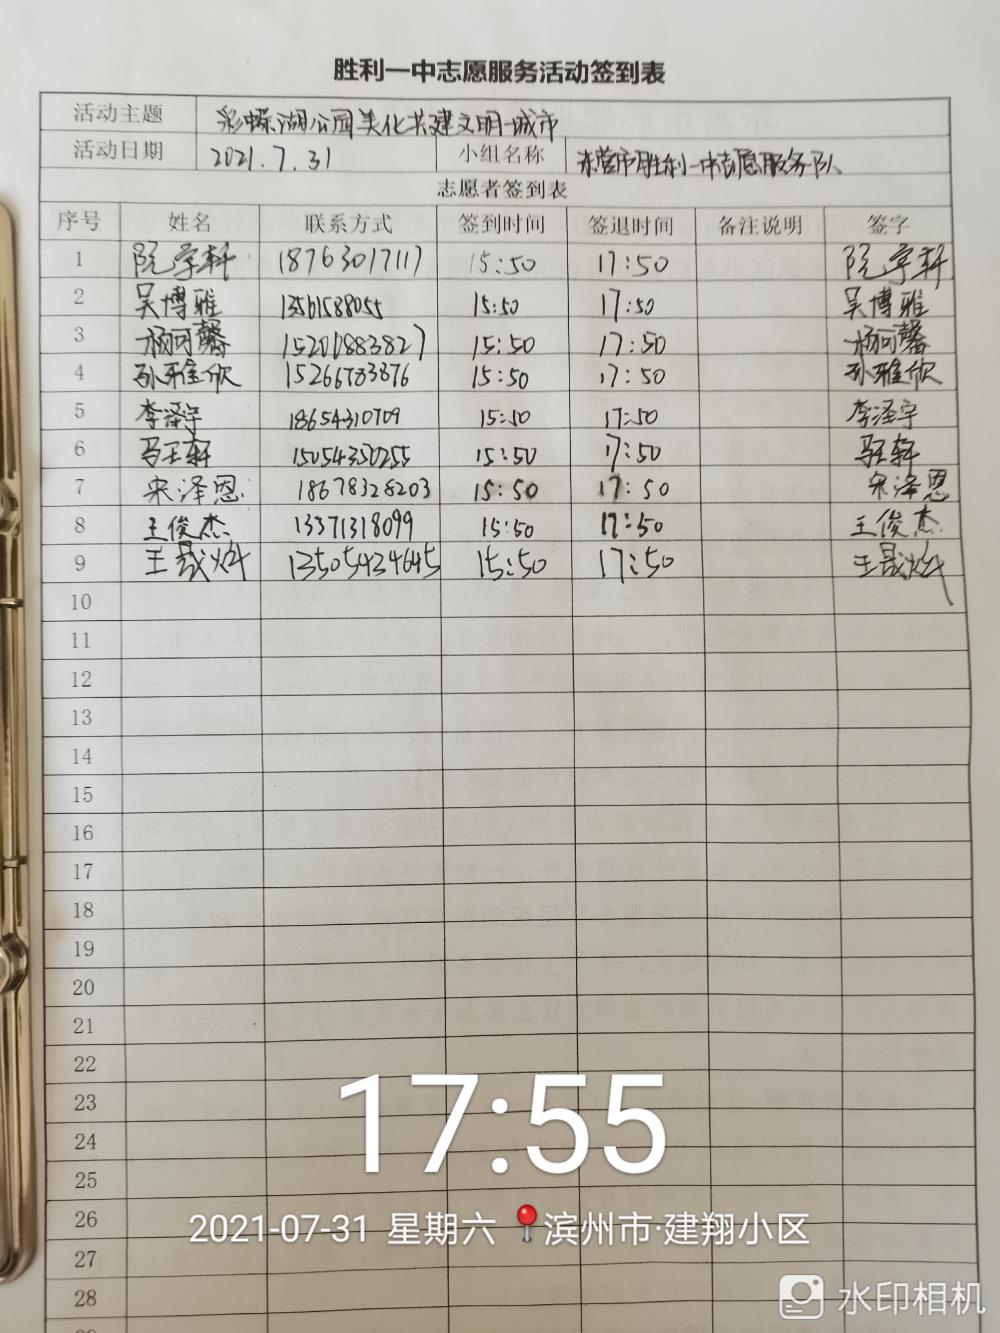 胜利一中志愿服务活动签到表
活动主题 彩蝶湖公园美化共建文明城市
活动日期 2021.7.31 小组名称 东营市胜利一中志愿服务队
志愿者签到表
序号 姓名 联系方式 签到时间 签退时间 备注说明 签字
1 阮学轩 18763017117 15:50 17:50 阮学轩
2 吴博雅 13561588055 15:50 17:50 吴博雅
3 杨可馨 15:50 17:50 杨可馨
4 孙雅欣 15266783876 15:50 17:50 孙雅欣
5 李泽宇 18654310709 15:50 17:50 李泽宇
6 马王轩 15054350255 15:50 17:50
7 宋泽恩 18678328203 15:50 17:50 宋泽恩
8 王俊杰 13371318099 15:50 17:50 王俊杰
9 王晟灿 13505434645 15:50 17:50 王晟灿
10
11
12
13
14
15
16
17
18
19
20
21
22
23
24
25
26
27
28
17:55
2021-07-31 星期六 滨州市·建翔小区
水印相机